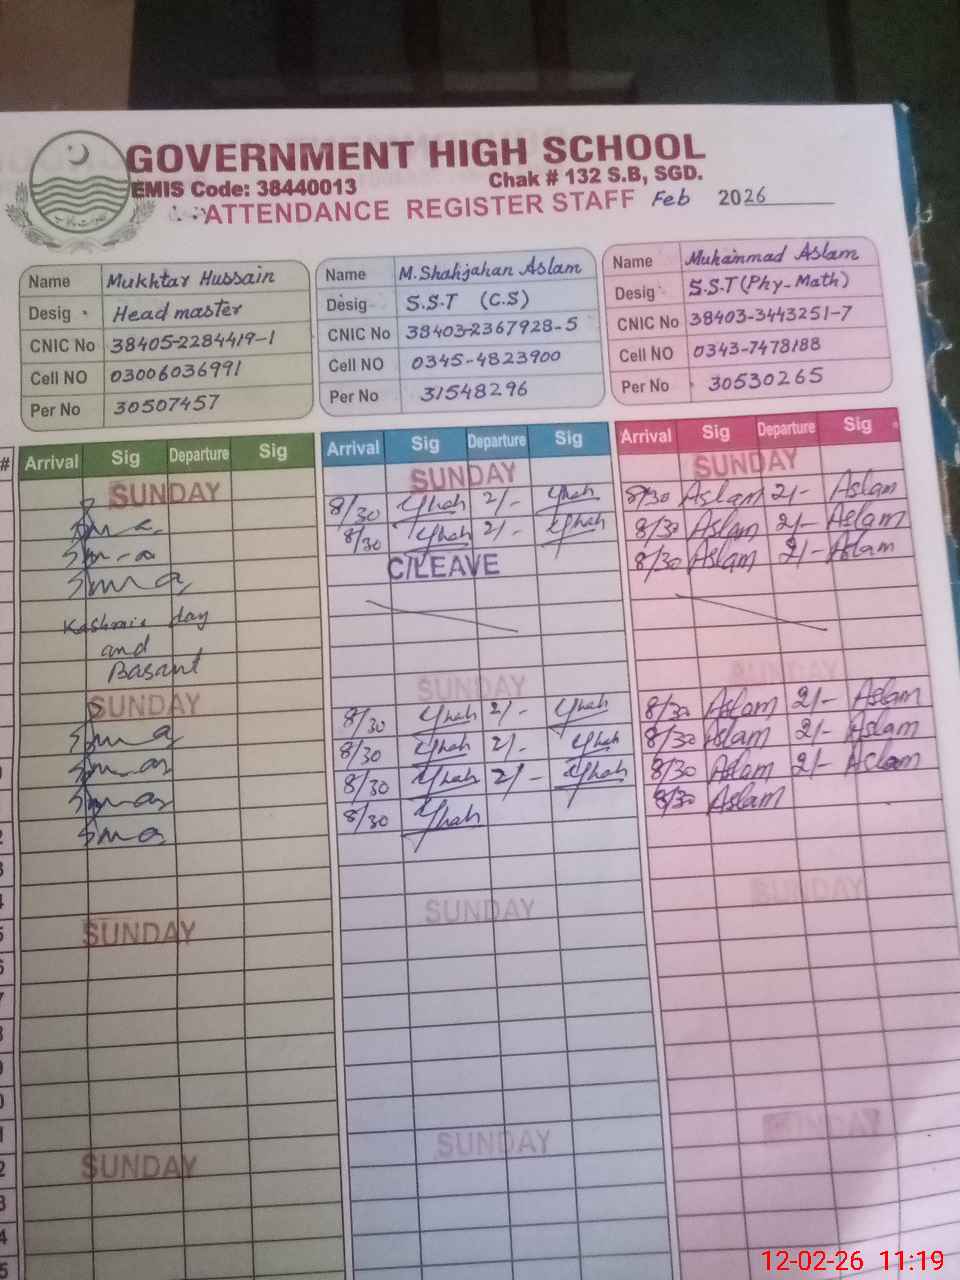 GOVERNMENT HIGH SCHOOL
EMIS Code: 38440013 Chak # 132 S.B, SGD.
ATTENDANCE REGISTER STAFF Feb 2026
Name Mukhtar Hussain
Desig Headmaster
CNIC No 38405-2284419-1
Cell NO 03006036991
Per No 30507457
Name M.Shahjahan Aslam
Desig S.S.T (C.S)
CNIC No 38403-2367928-5
Cell NO 0345-4823900
Per No 31548296
Name Muhammad Aslam
Desig S.S.T (Phy-Math)
CNIC No 38403-3443251-7
Cell NO 0343-7478188
Per No 30530265
# Arrival Sig Departure Sig
SUNDAY
Kashmir day
and
Basant
SUNDAY
SUNDAY
SUNDAY
Arrival Sig Departure Sig
SUNDAY
8/30 2/-
8/30 2/-
C/LEAVE
SUNDAY
8/30 2/-
8/30 2/-
8/30 2/-
8/30
SUNDAY
SUNDAY
Arrival Sig Departure Sig
SUNDAY
8/30 Aslam 2/- Aslam
8/30 Aslam 2/- Aslam
8/30 Aslam 2/- Aslam
SUNDAY
8/30 Aslam 2/- Aslam
8/30 Aslam 2/- Aslam
8/30 Aslam 2/- Aslam
8/30 Aslam
SUNDAY
SUNDAY
12-02-26 11:19